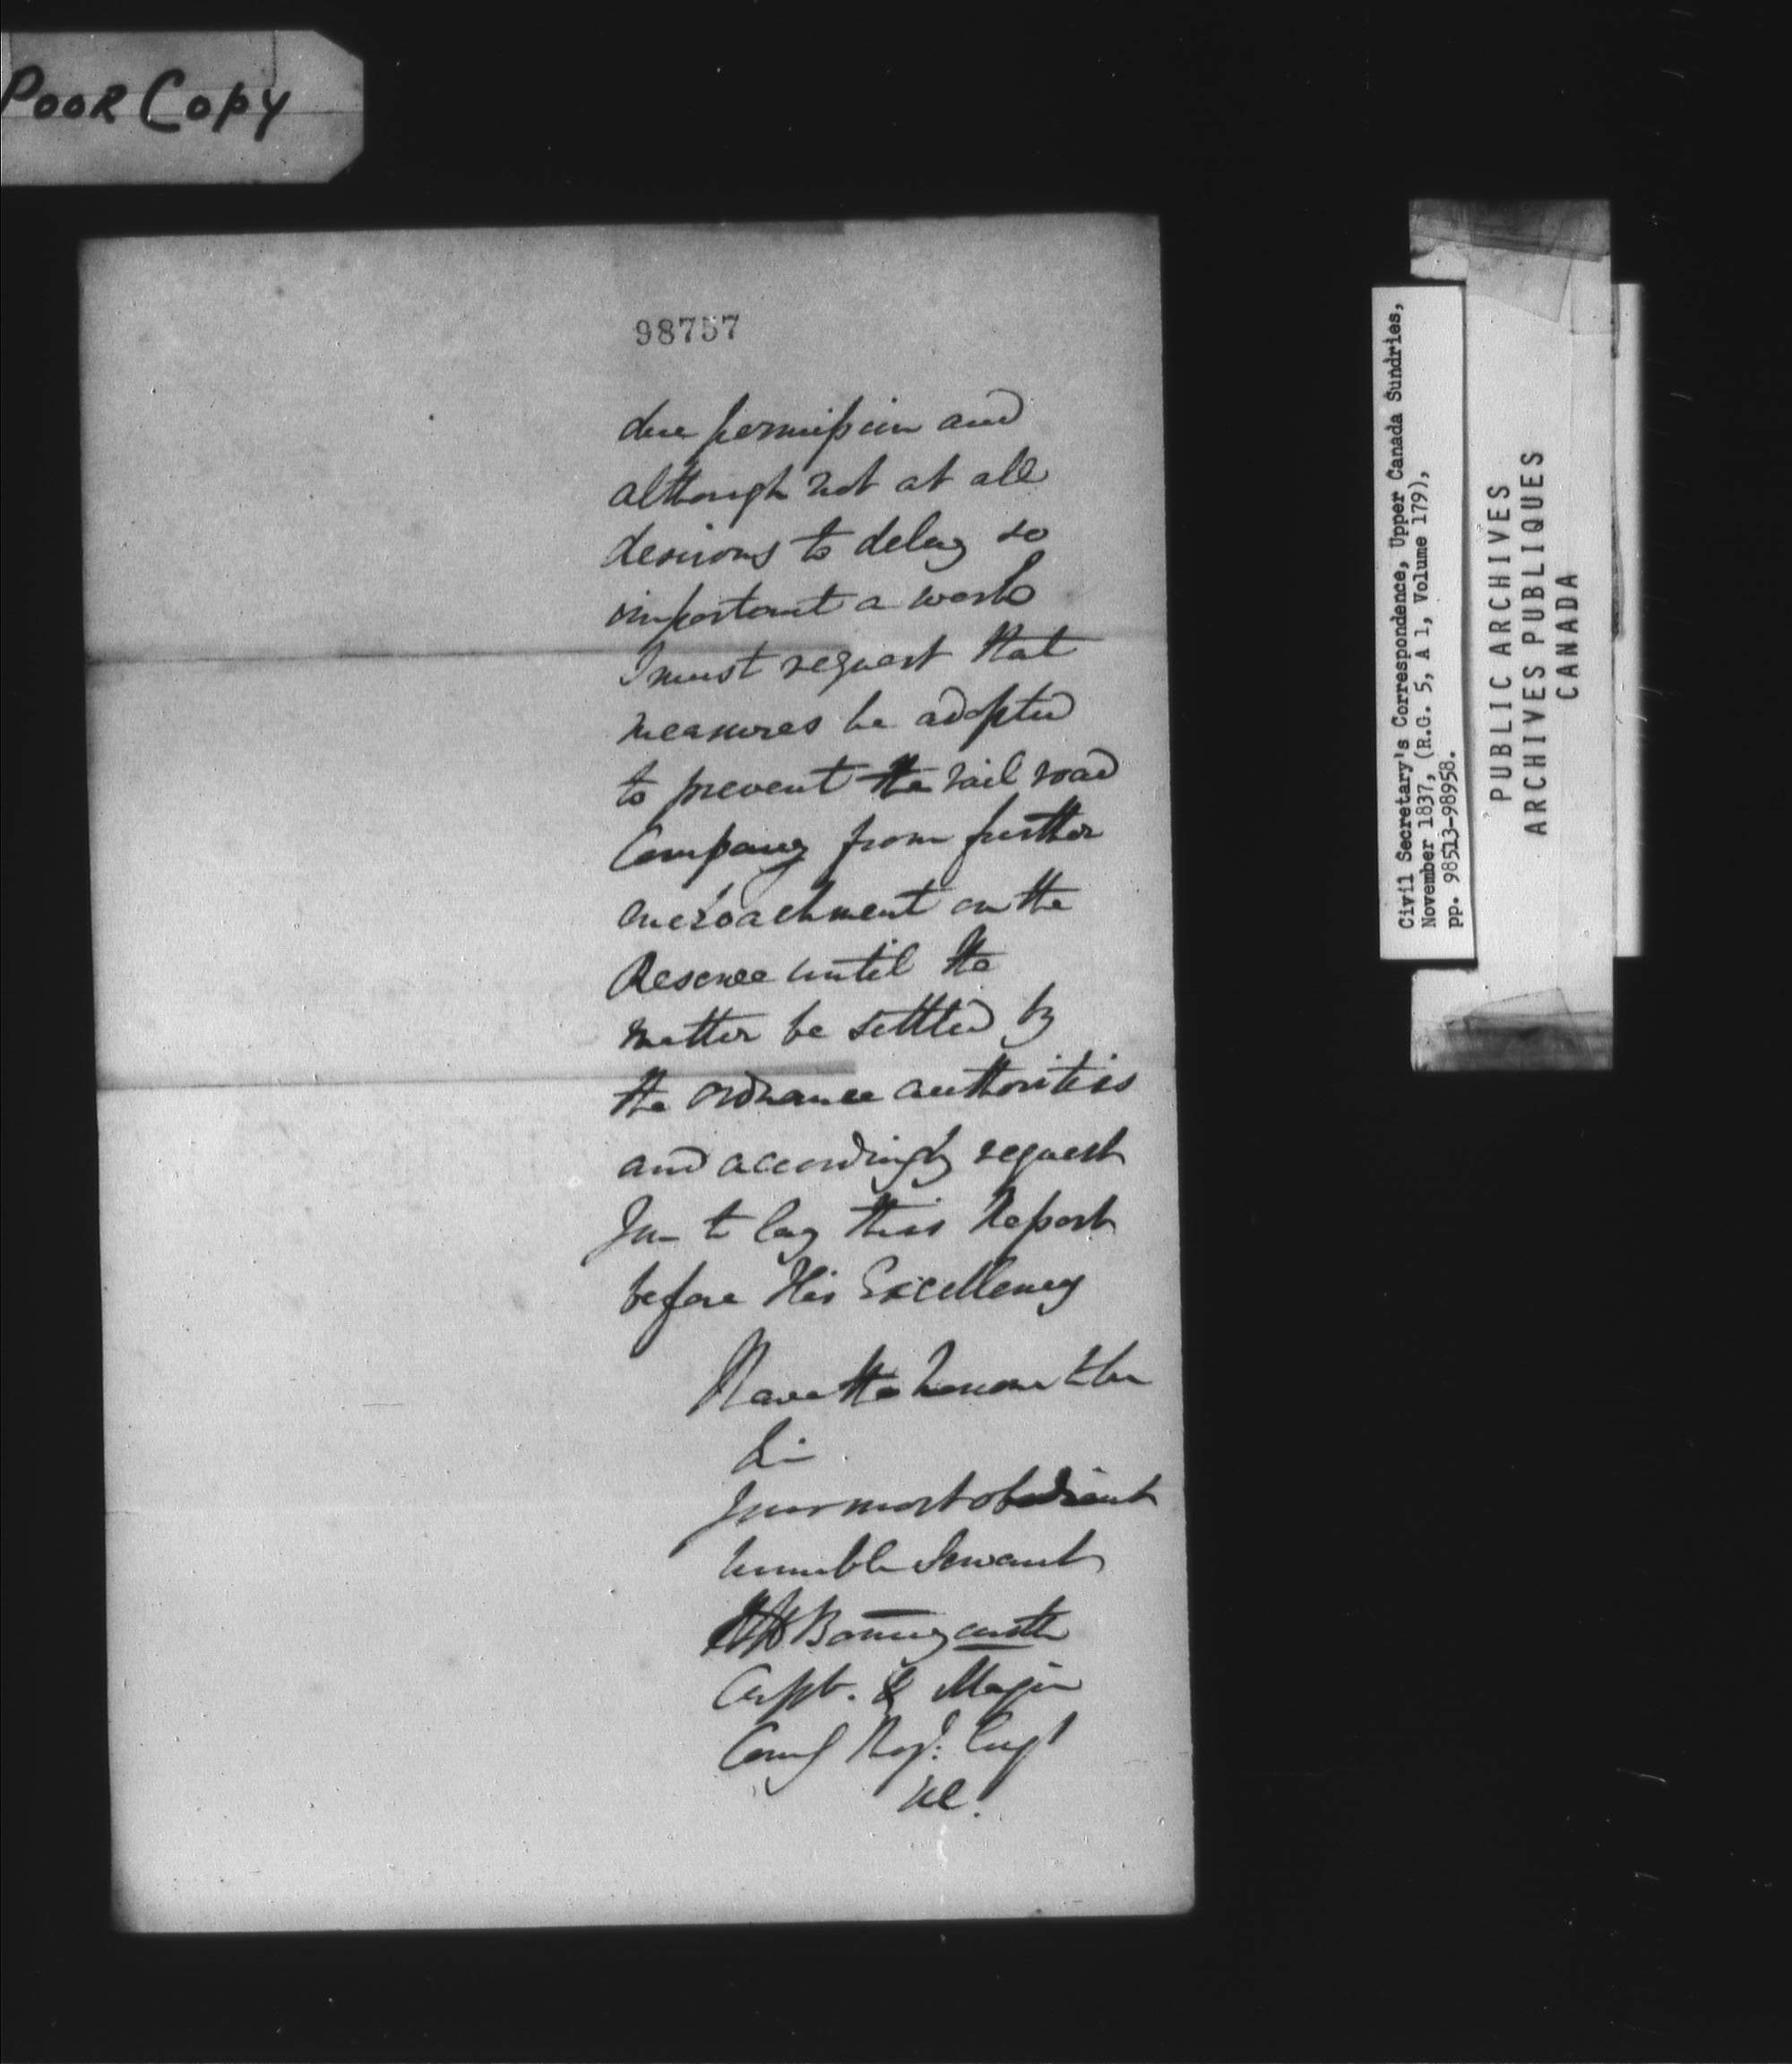 POOR COPY
98757
due permission and
although not at all
desirous to delay so
important a work
I must request that
measures be adopted
to prevent the rail road
Company from further
encroachment on the
Reserve until the
matter be settled by
the ordnance authorities
and accordingly request
You to lay this Report
before His Excellency
Have the honour to be
Sir
Your most obedient
humble Servant
RH Bonnycastle
Capt. & Major
Comg Roy: Engr
UC.
Civil Secretary's Correspondence, Upper Canada Sundries,
November 1837, (R.G. 5, A 1, Volume 179),
pp. 98513-98958.
PUBLIC ARCHIVES
ARCHIVES PUBLIQUES
CANADA